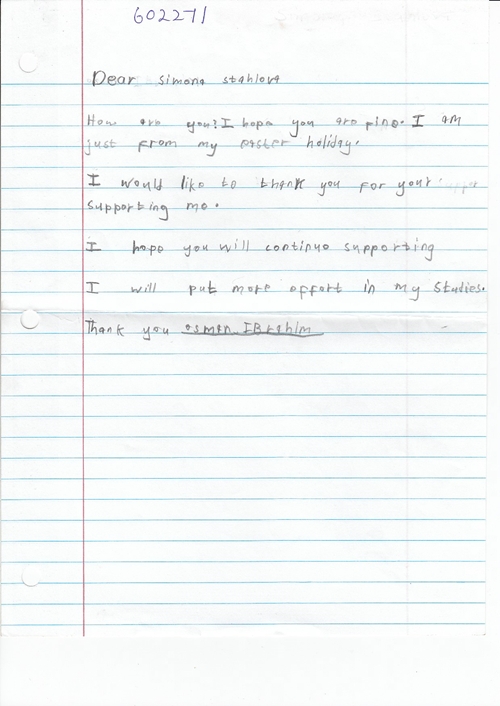 602271
Dear Simona stahlova
How are you? I hope you are fine. I am
just from my easter holiday.
I would like to thank you for your
supporting me.
I hope you will continue supporting
I will put more effort in my studies.
Thank you osman IBrahim